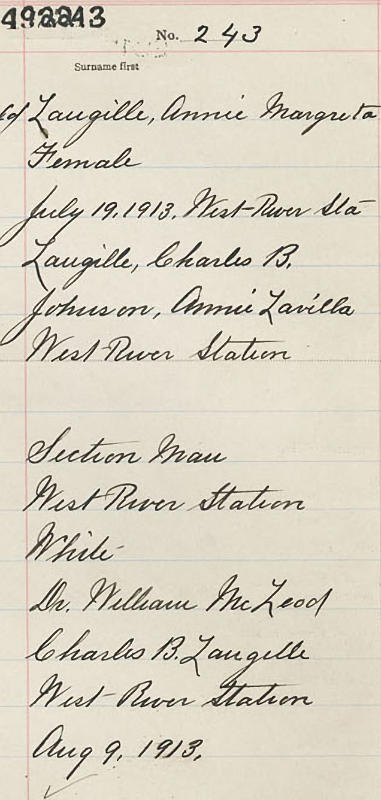 492243
No. 243
Surname first
Langille, Annie Margreta
Female
July 19, 1913. West River Sta
Langille, Charles B.
Johnson, Annie Lavilla
West River Station
Section Man
West River Station
White
Dr. William McLeod
Charles B. Langille
West River Station
Aug 9, 1913.